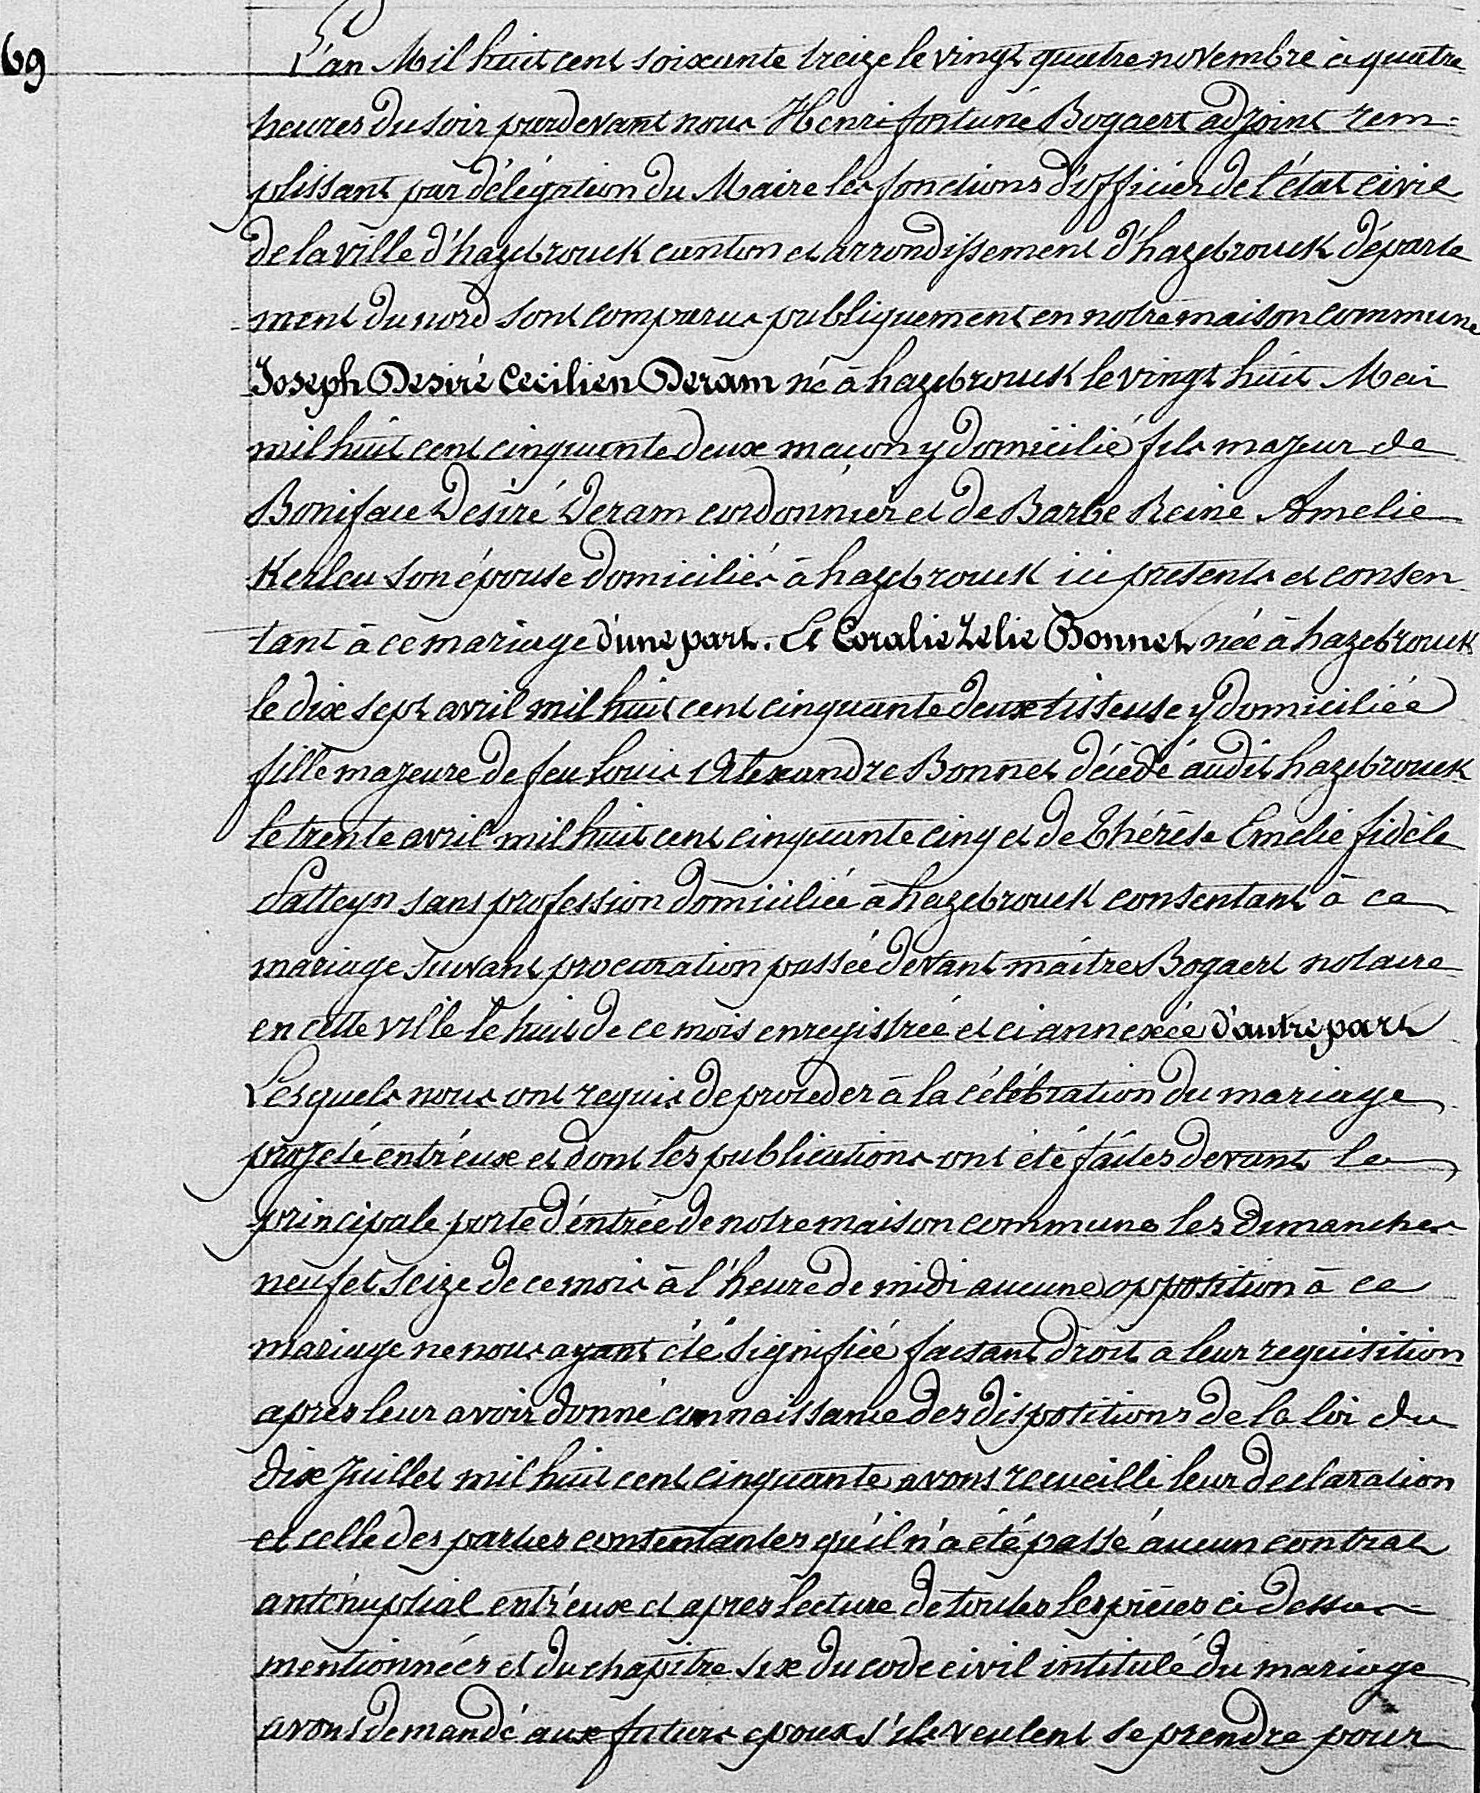 69
L'an Mil huit cent soixante treize le vingt quatre novembre à quatre
heures du soir pardevant nous Henri fortuné Bogaert adjoint rem-
plissant par délégation du Maire les fonctions d'officier de l'état civil
de la ville d'hazebrouck canton et arrondissement d'hazebrouck départe
ment du nord sont comparus publiquement en notre maison commune
Joseph Desiré Cecilien Deram né à hazebrouck le vingt huit Mai
mil huit cent cinquante deux maçon y domicilié fils majeur de
Boniface Desiré Deram cordonnier et de Barbe Reine Amelie
Kerleu son épouse domiciliés à hazebrouck ici présents et consen
tant à ce mariage d'une part. Et Coralie Zelie Bonnet née à hazebrouck
le dix sept avril mil huit cent cinquante deux tisseuse y domiciliée
fille majeure de feu Louis Alexandre Bonnet décédé audit hazebrouck
le trente avril mil huit cent cinquante cinq et de Thérèse Emelie fidèle
Patteyn sans profession domiciliée à hazebrouck consentant à ce
mariage suivant procuration passée devant maître Bogaert notaire
en cette ville le huit de ce mois enregistrée et ci annexée d'autre part
Lesquels nous ont requis de proceder à la célébration du mariage
projeté entr'eux et dont les publications ont été faites devant la
principale porte d'entrée de notre maison commune les Dimanches
neuf et seize de ce mois à l'heure de midi aucune opposition à ce
mariage ne nous ayant été signifiée faisant droit a leur requisition
après leur avoir donné connaissance des dispositions de la loi du
dix Juillet mil huit cent cinquante avons recueilli leur declaration
et celle des parties consentantes qu'il n'a été passé aucun contrat
anténuptial entr'eux et apres lecture de toutes les pièces ci dessus
mentionnées et du chapitre six du code civil intitulé du mariage
avons demandé aux futurs epoux s'ils veulent se prendre pour